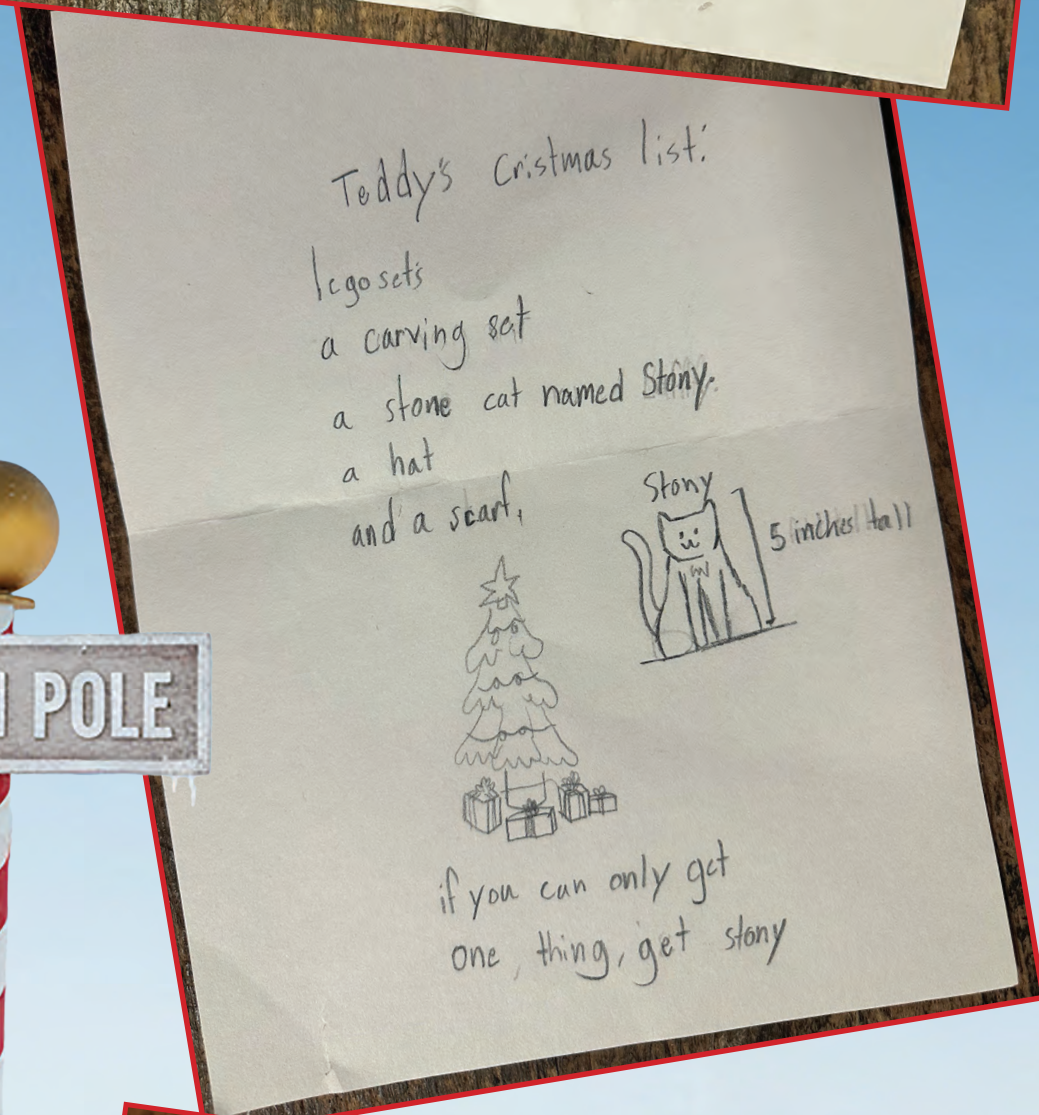 Teddy's Cristmas list:
lego sets
a carving set
a stone cat named Stony.
a hat
and a scarf,
Stony
5 inches tall
POLE
if you can only get
one, thing, get stony